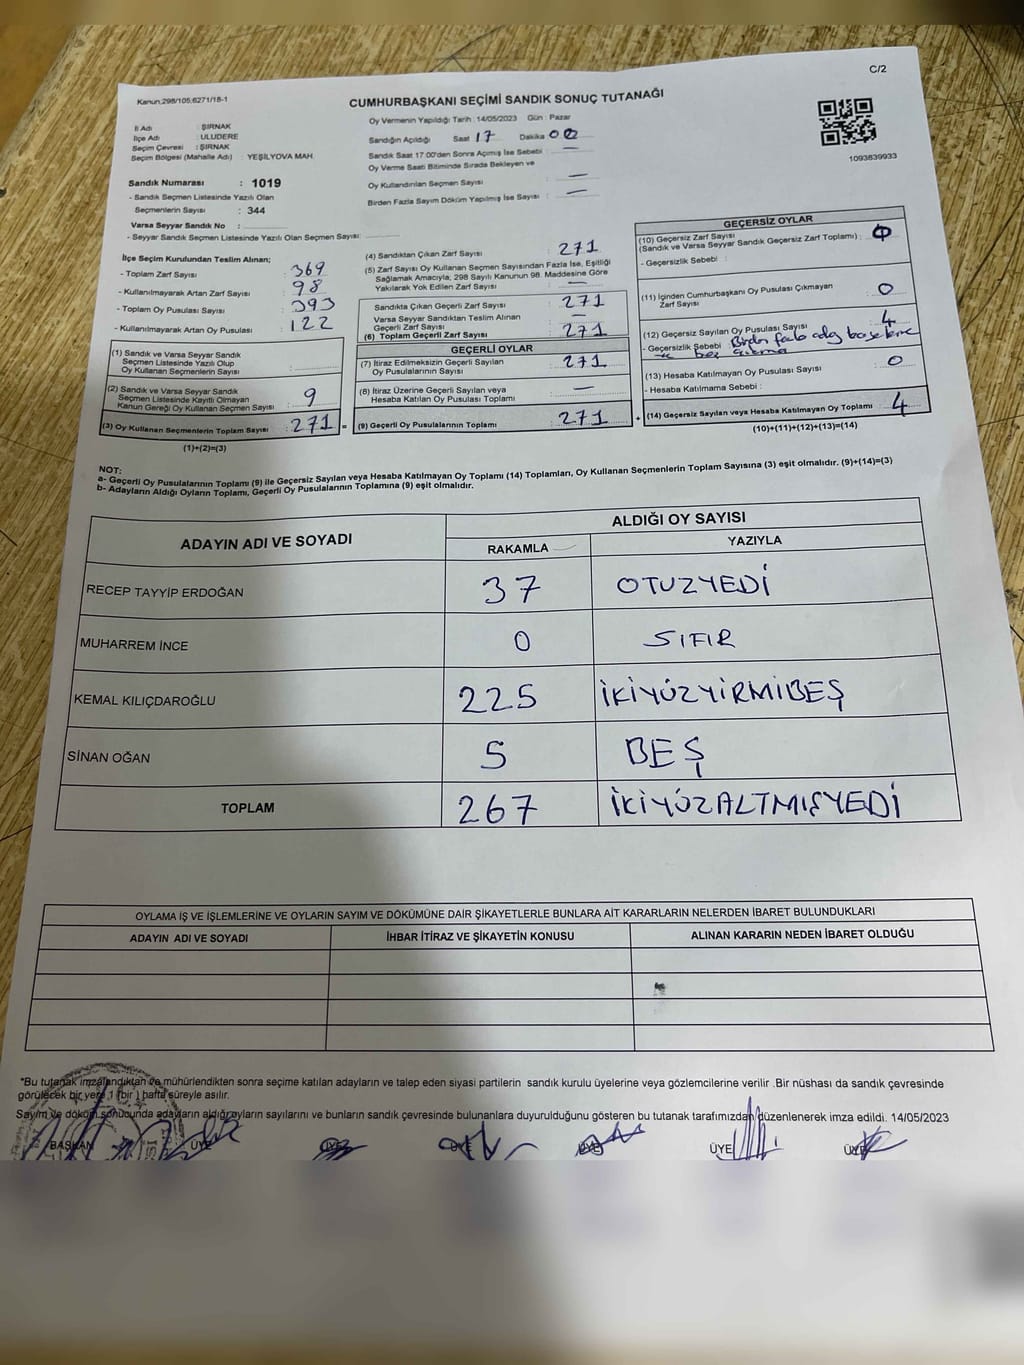 C/2
Kanun.298/105;6271/18-1
CUMHURBAŞKANI SEÇİMİ SANDIK SONUÇ TUTANAĞI
İl Adı : ŞIRNAK
İlçe Adı : ULUDERE
Seçim Çevresi : ŞIRNAK
Seçim Bölgesi (Mahalle Adı) : YEŞİLYOVA MAH.
Oy Vermenin Yapıldığı Tarih : 14/05/2023 Gün : Pazar
Sandığın Açıldığı Saat 17 Dakika 00
Sandık Saat 17:00'den Sonra Açımış İse Sebebi : —
Oy Verme Saati Bitiminde Sırada Bekleyen ve
Oy Kullandırılan Seçmen Sayısı : —
Birden Fazla Sayım Döküm Yapılmış İse Sayısı : —
1093839933
Sandık Numarası : 1019
- Sandık Seçmen Listesinde Yazılı Olan
Seçmenlerin Sayısı : 344
Varsa Seyyar Sandık No :
- Seyyar Sandık Seçmen Listesinde Yazılı Olan Seçmen Sayısı:
İlçe Seçim Kurulundan Teslim Alınan;
- Toplam Zarf Sayısı : 369
- Kullanılmayarak Artan Zarf Sayısı : 98
- Toplam Oy Pusulası Sayısı : 393
- Kullanılmayarak Artan Oy Pusulası : 122
(1) Sandık ve Varsa Seyyar Sandık
Seçmen Listesinde Yazılı Olup
Oy Kullanan Seçmenlerin Sayısı :
(2) Sandık ve Varsa Seyyar Sandık
Seçmen Listesinde Kayıtlı Olmayan
Kanun Gereği Oy Kullanan Seçmen Sayısı : 9
(3) Oy Kullanan Seçmenlerin Toplam Sayısı : 271 =
(1)+(2)=(3)
(4) Sandıktan Çıkan Zarf Sayısı : 271
(5) Zarf Sayısı Oy Kullanan Seçmen Sayısından Fazla İse, Eşitliği
Sağlamak Amacıyla, 298 Sayılı Kanunun 98. Maddesine Göre
Yakılarak Yok Edilen Zarf Sayısı : —
Sandıkta Çıkan Geçerli Zarf Sayısı : 271
Varsa Seyyar Sandıktan Teslim Alınan
Geçerli Zarf Sayısı : —
(6) Toplam Geçerli Zarf Sayısı : 271
GEÇERLİ OYLAR
(7) İtiraz Edilmeksizin Geçerli Sayılan
Oy Pusulalarının Sayısı : 271
(8) İtiraz Üzerine Geçerli Sayılan veya
Hesaba Katılan Oy Pusulası Toplamı : —
(9) Geçerli Oy Pusulalarının Toplamı : 271 +
GEÇERSİZ OYLAR
(10) Geçersiz Zarf Sayısı
(Sandık ve Varsa Seyyar Sandık Geçersiz Zarf Toplamı) : 0
- Geçersizlik Sebebi :
(11) İçinden Cumhurbaşkanı Oy Pusulası Çıkmayan
Zarf Sayısı : 0
(12) Geçersiz Sayılan Oy Pusulası Sayısı : 4
- Geçersizlik Sebebi : Birden fazla
ve boş
(13) Hesaba Katılmayan Oy Pusulası Sayısı : 0
- Hesaba Katılmama Sebebi :
(14) Geçersiz Sayılan veya Hesaba Katılmayan Oy Toplamı : 4
(10)+(11)+(12)+(13)=(14)
NOT:
a- Geçerli Oy Pusulalarının Toplamı (9) ile Geçersiz Sayılan veya Hesaba Katılmayan Oy Toplamı (14) Toplamları, Oy Kullanan Seçmenlerin Toplam Sayısına (3) eşit olmalıdır. (9)+(14)=(3)
b- Adayların Aldığı Oyların Toplamı, Geçerli Oy Pusulalarının Toplamına (9) eşit olmalıdır.
ADAYIN ADI VE SOYADI
ALDIĞI OY SAYISI
RAKAMLA YAZIYLA
RECEP TAYYİP ERDOĞAN 37 OTUZYEDİ
MUHARREM İNCE 0 SIFIR
KEMAL KILIÇDAROĞLU 225 İKİYÜZYİRMİBEŞ
SİNAN OĞAN 5 BEŞ
TOPLAM 267 İKİYÜZALTMIŞYEDİ
OYLAMA İŞ VE İŞLEMLERİNE VE OYLARIN SAYIM VE DÖKÜMÜNE DAİR ŞİKAYETLERLE BUNLARA AİT KARARLARIN NELERDEN İBARET BULUNDUKLARI
ADAYIN ADI VE SOYADI İHBAR İTİRAZ VE ŞİKAYETİN KONUSU ALINAN KARARIN NEDEN İBARET OLDUĞU
*Bu tutanak imzalandıktan ve mühürlendikten sonra seçime katılan adayların ve talep eden siyasi partilerin sandık kurulu üyelerine veya gözlemcilerine verilir .Bir nüshası da sandık çevresinde
görülecek bir yere 1 (bir ) hafta süreyle asılır.
Sayım ve döküm sonucunda adayların aldığı oyların sayılarını ve bunların sandık çevresinde bulunanlara duyurulduğunu gösteren bu tutanak tarafımızdan düzenlenerek imza edildi. 14/05/2023
BAŞKAN ÜYE ÜYE ÜYE ÜYE ÜYE ÜYE